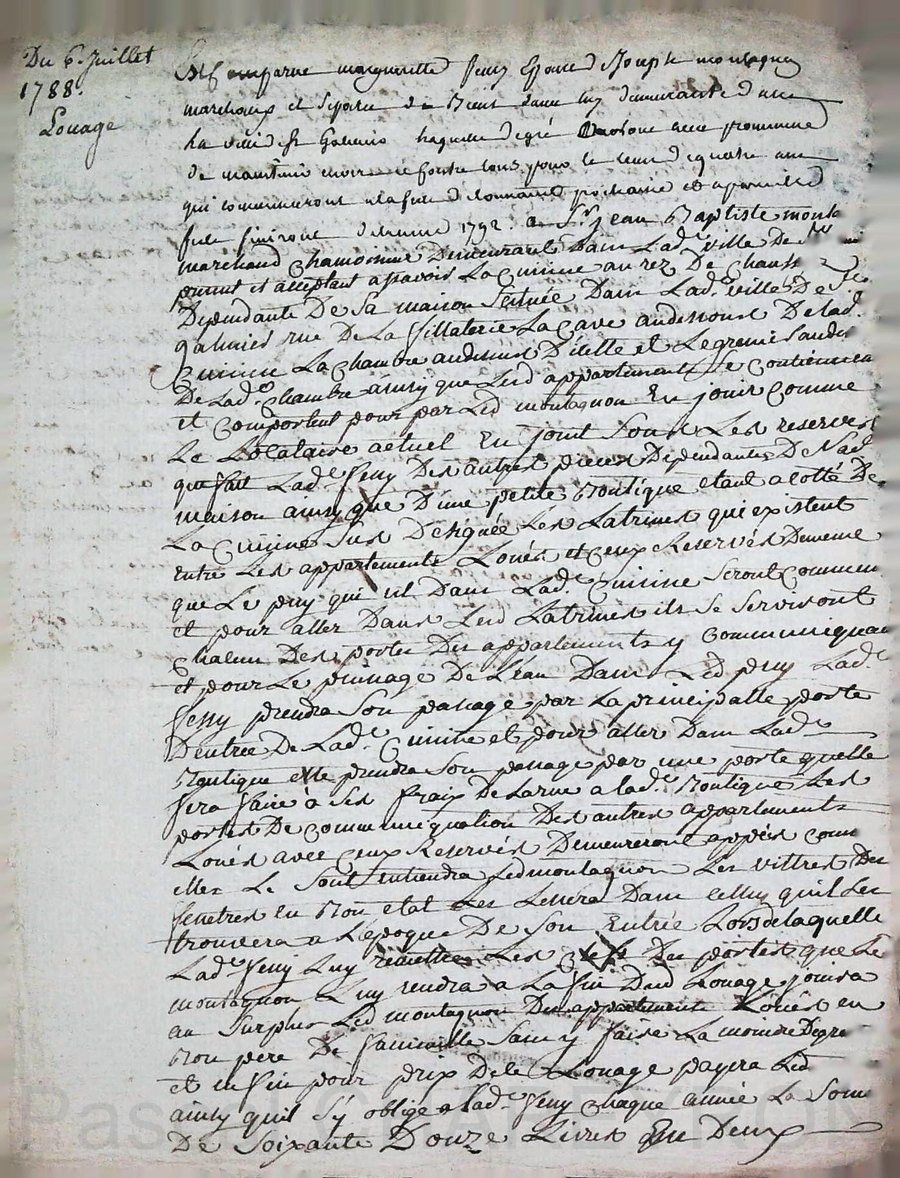 Du 6. Juillet
1788.
Louage
Est Comparue marguerite feuy Epouse de Joseph montagnon
marchand et separée de Biens d'avec luy demeurante dans
la ville de St Galmier laquelle de gré a loué avec promesse
de maintenir envers et contre tous pour le tems de quatre ans
qui commenceront a la fete de toussaint prochaine et a pareille
fete finiront de l'année 1792. a Sr. Jean Baptiste monta
marchand Chamoisseur Demeurant dans Lad.e ville De St
présent et acceptant assavoir La Cuisine au rez De Chaussée
Dependante De Sa maison Scituée Dans Lad.e ville De St
galmier rue De La fillaterie La Cave audessous De lad.e
Cuisine La Chambre audessus D'icelle et Le grenier audessus
De Lad.e Chambre ainsy que Lesd appartements Se Contiennent
et Comportent pour par Led montagnon En jouir Comme
Le Locataire actuel En jouit Sous Les reserves
que fait Lad.e feuy Des autres pieces Dependantes De Lad.e
maison ainsy que D'une petite Boutique etant a Cotté De
La Cuisine Sus Designée Les Latrines qui existent
entre Les appartements Loués et Ceux Reservés Demême
que Le puy qui est Dans Lad.e Cuisine Seront Communs
et pour aller Dans Lesd Latrines ils Se Serviront
Chacun Des portes Des appartements y Communiquant
et pour Le puisage De L'eau Dans Led puy Lad.e
feuy prendra Son passage par La principalle porte
D'entrée De Lad.e Cuisine et pour aller Dans Lad.e
Boutique elle prendra Son passage par une porte quelle
fera faire à Ses fraix De La rue a lad.e Boutique Les
portes De Communication Des autres appartements
Loués avec Ceux Reservés Demeureront Comme
elles Le Sont entiendra Led montagnon Les vittres Des
fenetres en Bon etat Les Laissera Dans Celluy quil Les
trouvera a L'epoque De Son Entrée Lors de laquelle
Lad.e feuy Luy remettra Les Clefs Des portes que Le
montagnon Luy rendra a La fin Dud Louage jouira
au Surplus Led montagnon Des appartements Loués en
Bon pere De famille Sans y faire La moindre Degra
et enfin pour prix De Louage payera Led
ainsy quil S'y oblige a lad.e feuy Chaque année La Som
De Soixante Douze Livres En Deux